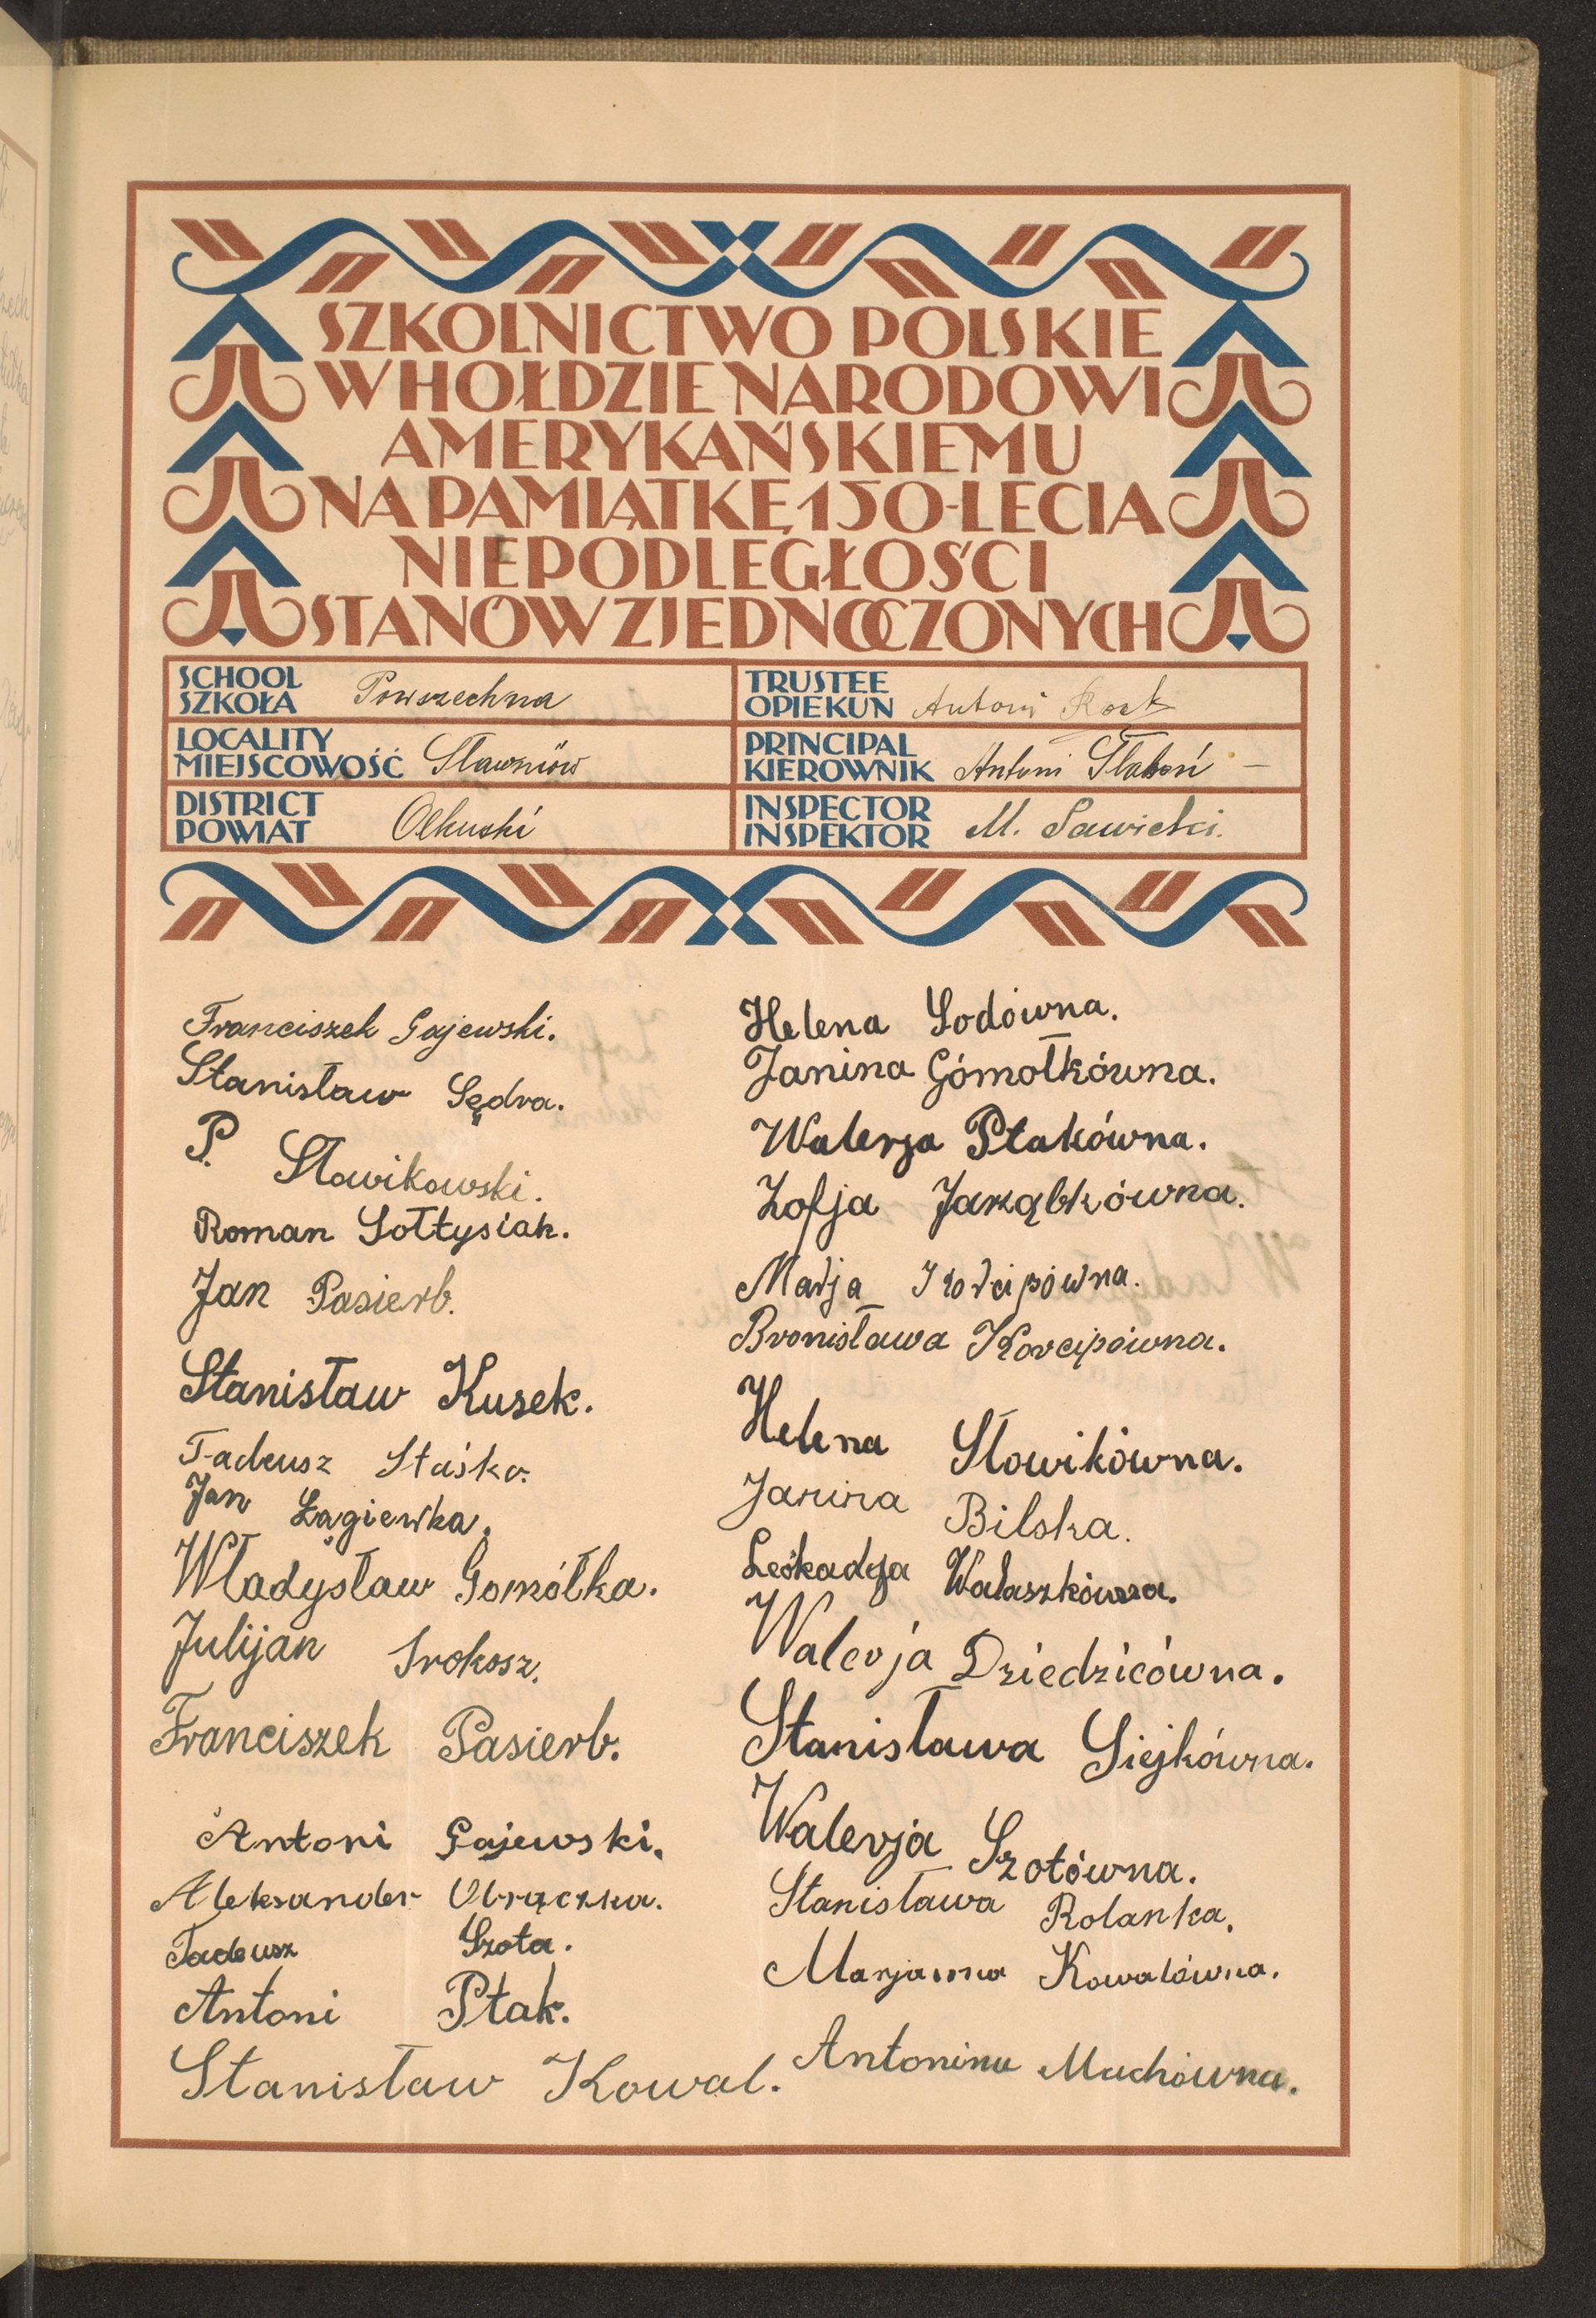 SZKOLNICTWO POLSKIE
W HOŁDZIE NARODOWI
AMERYKAŃSKIEMU
NA PAMIĄTKĘ 150-LECIA
NIEPODLEGŁOŚCI
STANÓW ZJEDNOCZONYCH
SCHOOL
SZKOŁA Powszechna
TRUSTEE
OPIEKUN Antoni
LOCALITY
MIEJSCOWOŚĆ Sławniów
PRINCIPAL
KIEROWNIK Antoni Słaboń –
DISTRICT
POWIAT Olkuski
INSPECTOR
INSPEKTOR M. Sawicki.
Franciszek Gajewski.
Stanisław Sędra.
P. Słowikowski.
Roman Sołtysiak.
Jan Pasierb.
Stanisław Kusek.
Tadeusz Staśko.
Jan Łągiewka.
Władysław Gomółka.
Julijan Srokosz.
Franciszek Pasierb.
Antoni Gajewski.
Aleksander Obrączka.
Tadeusz Szota.
Antoni Ptak.
Stanisław Kowal.
Helena Sodówna.
Janina Gómołkówna.
Walerja Ptakówna.
Zofja Jarząbkówna.
Marja Korcipówna.
Bronisława Korcipówna.
Helena Słowikówna.
Janina Bilska.
Leokadja Wałaszkówna.
Walerja Dziedzicówna.
Stanisława Siejkówna.
Walerja Szotówna.
Stanisława Rolanka.
Marjanna Kowalówna.
Antonina Muchówna.